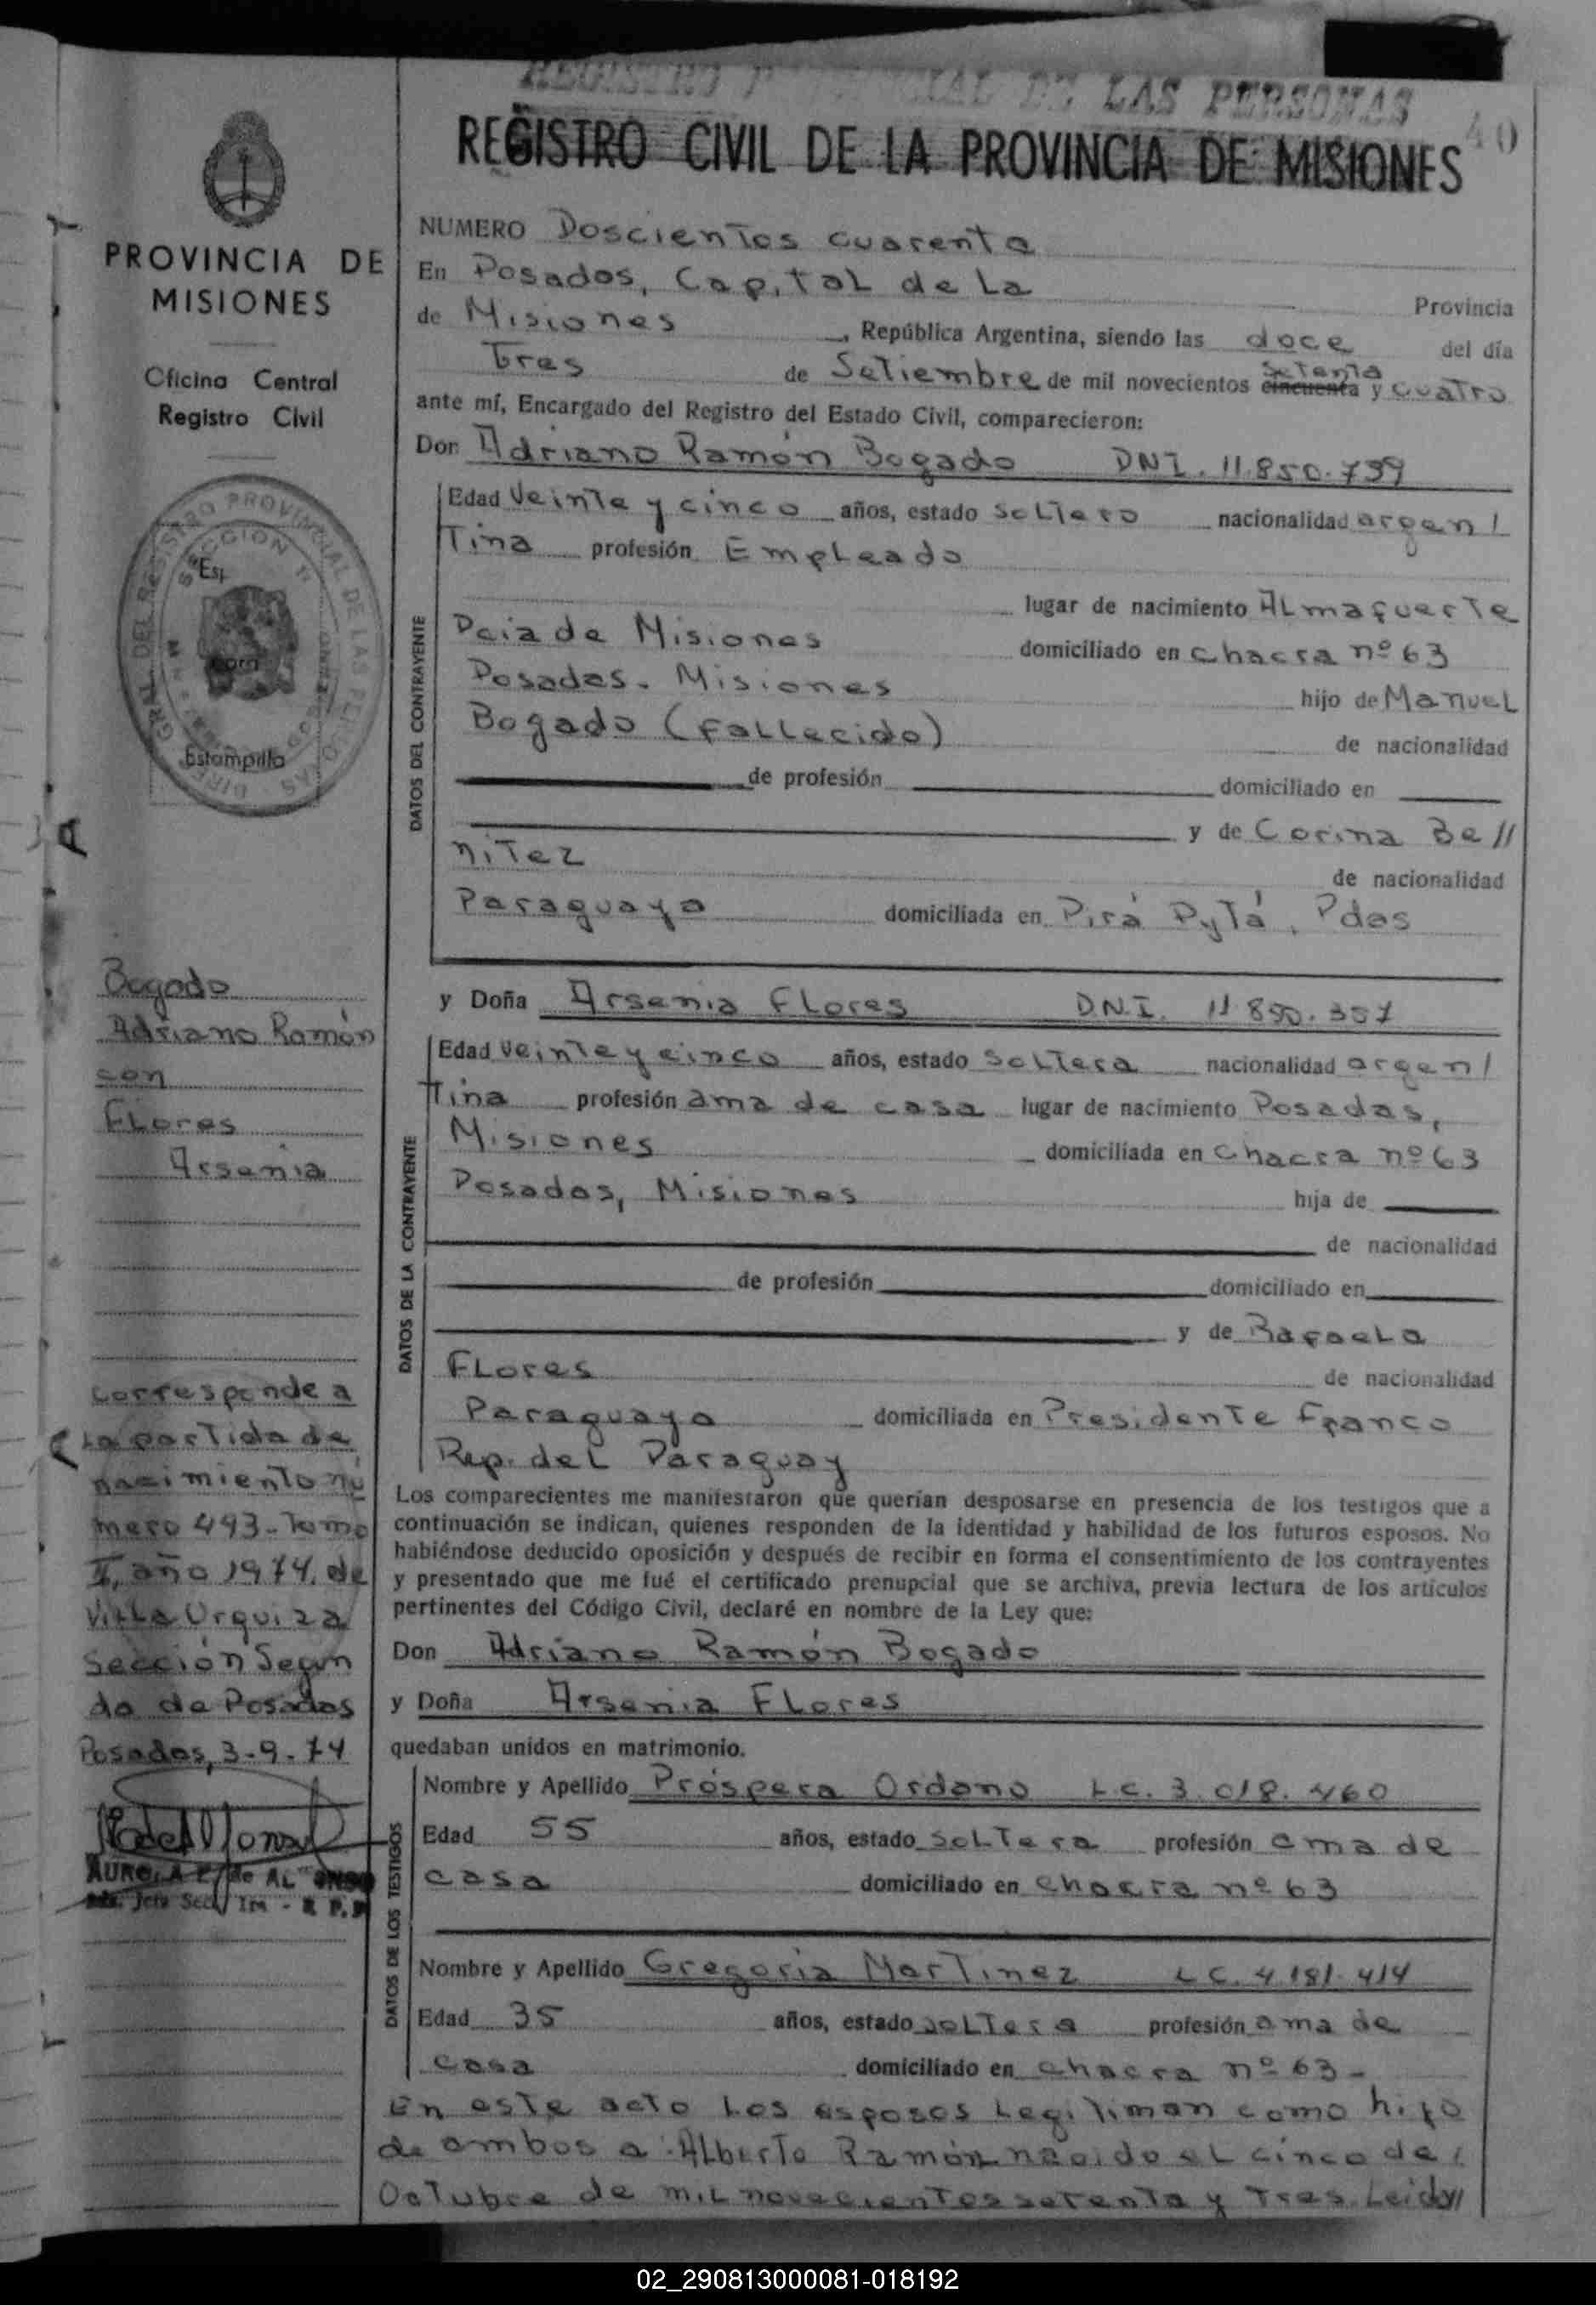 REGISTRO CIVIL DE LA PROVINCIA DE MISIONES
40
PROVINCIA DE
MISIONES
Oficina Central
Registro Civil
Estampilla
NUMERO Doscientos cuarenta
En Posadas, Capital de La Provincia
de Misiones, República Argentina, siendo las doce del día
tres de Setiembre de mil novecientos cincuenta setenta y cuatro
ante mí, Encargado del Registro del Estado Civil, comparecieron:
Don Adriano Ramón Bogado DNI. 11.850.739
DATOS DEL CONTRAYENTE
Edad Veinte y cinco años, estado soltero nacionalidad argen/
tina profesión Empleado
lugar de nacimiento Almafuerte
Pcia de Misiones domiciliado en chacra nº 63
Posadas. Misiones hijo de Manuel
Bogado (Fallecido) de nacionalidad
de profesión domiciliado en
y de Corina Be//
nitez de nacionalidad
Paraguaya domiciliada en Pirá Pytá, Pdas
y Doña Arsenia Flores D.N.I. 11.850.357
DATOS DE LA CONTRAYENTE
Edad veinte y cinco años, estado soltera nacionalidad argen/
tina profesión ama de casa lugar de nacimiento Posadas,
Misiones domiciliada en chacra nº 63
Posadas, Misiones hija de
de nacionalidad
de profesión domiciliado en
y de Rafaela
Flores de nacionalidad
Paraguaya domiciliada en Presidente Franco
Rep. del Paraguay
Los comparecientes me manifestaron que querían desposarse en presencia de los testigos que a
continuación se indican, quienes responden de la identidad y habilidad de los futuros esposos. No
habiéndose deducido oposición y después de recibir en forma el consentimiento de los contrayentes
y presentado que me fué el certificado prenupcial que se archiva, previa lectura de los artículos
pertinentes del Código Civil, declaré en nombre de la Ley que:
Don Adriano Ramón Bogado
y Doña Arsenia Flores
quedaban unidos en matrimonio.
DATOS DE LOS TESTIGOS
Nombre y Apellido Próspera Ordano L.C. 3.018.460
Edad 55 años, estado soltera profesión ama de
casa domiciliado en chacra nº 63
Nombre y Apellido Gregoria Martinez L.C. 4.181.414
Edad 35 años, estado soltera profesión ama de
casa domiciliado en chacra nº 63-
En este acto los esposos legitiman como hijo
de ambos a Alberto Ramón nacido el cinco de
Octubre de mil novecientos setenta y tres. Leida//
Bogado
Adriano Ramón
con
Flores
Arsenia
Corresponde a
la partida de
nacimiento nú
mero 493-Tomo
II, año 1974, de
Villa Urquiza
Sección Segun
da de Posadas
Posadas, 3-9-74
02_290813000081-018192